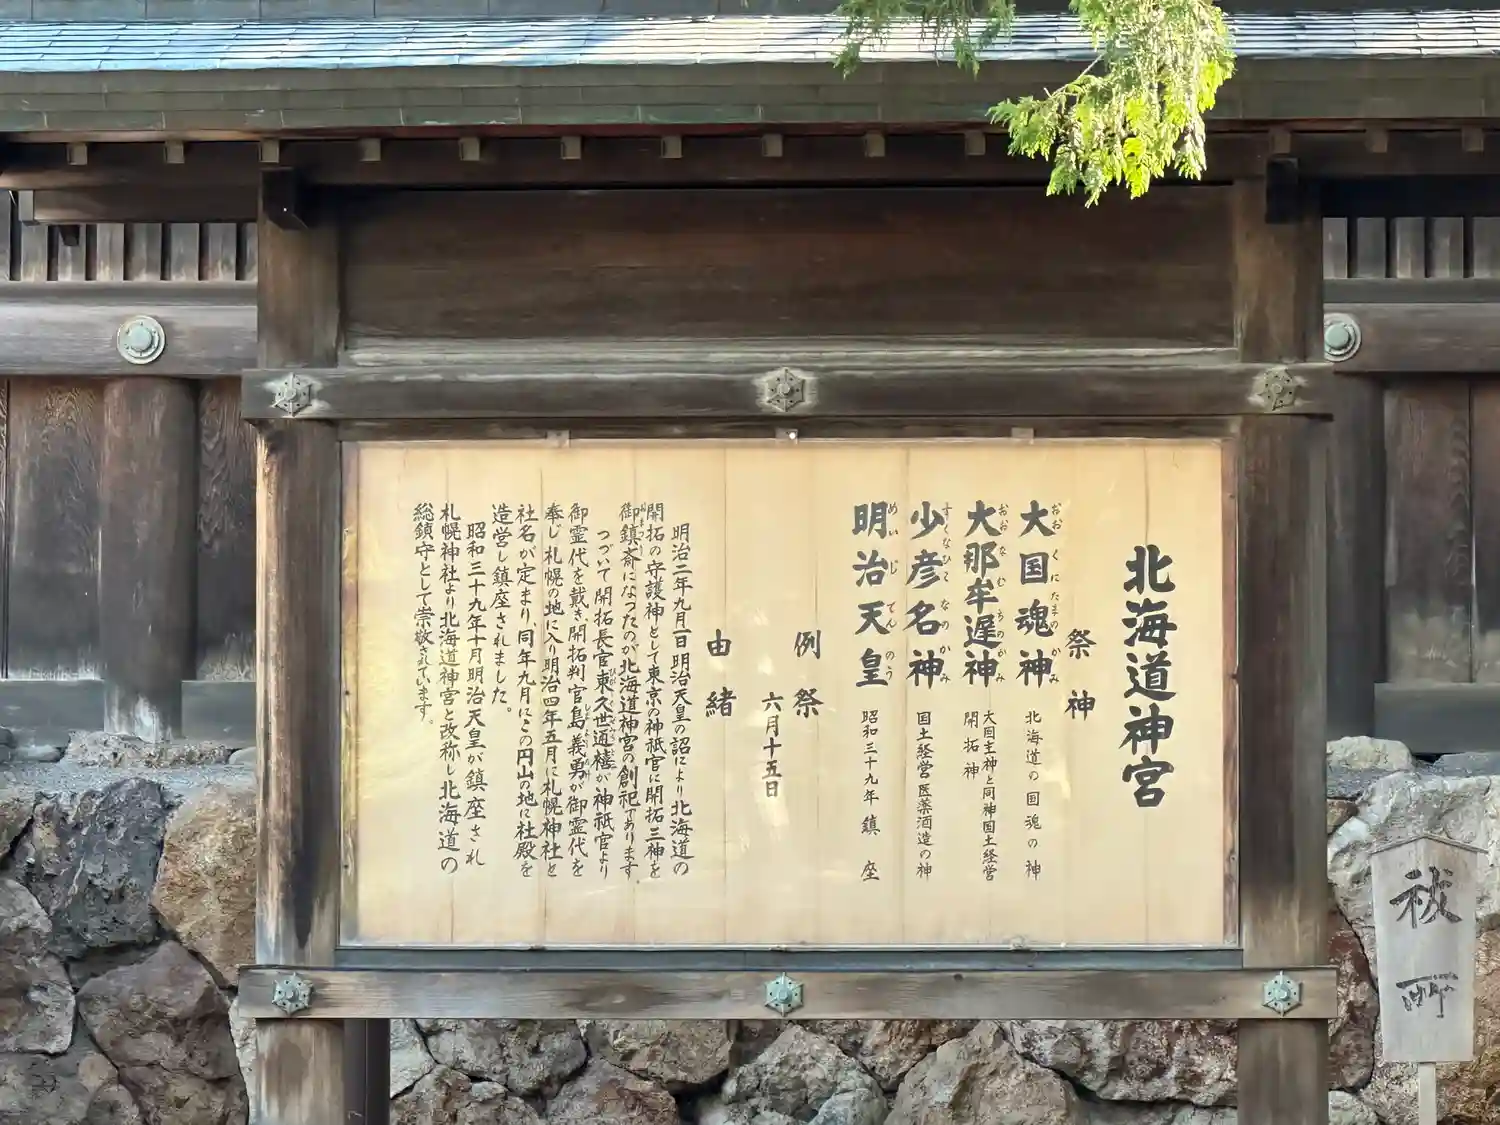 北海道神宮
祭神
大国魂神
おおくにたまのかみ
北海道の国魂の神
大那牟遅神
おおなむちのかみ
大国主神と同神国土経営
開拓神
少彦名神
すくなひこなのかみ
国土経営医薬酒造の神
明治天皇
めいじてんのう
昭和三十九年鎮座
例祭
六月十五日
由緒
明治二年九月一日明治天皇の詔により北海道の
開拓の守護神として東京の神祇官に開拓三神を
御鎮斎になったのが北海道神宮の創祀であります
つづいて開拓長官東久世通禧が神祇官より
御霊代を戴き、開拓判官島義勇が御霊代を
奉じ札幌の地に入り明治四年五月に札幌神社と
社名が定まり、同年九月にこの円山の地に社殿を
造営し鎮座されました。
昭和三十九年十月明治天皇が鎮座され
札幌神社より北海道神宮と改称し北海道の
総鎮守として崇敬されています。
祓所